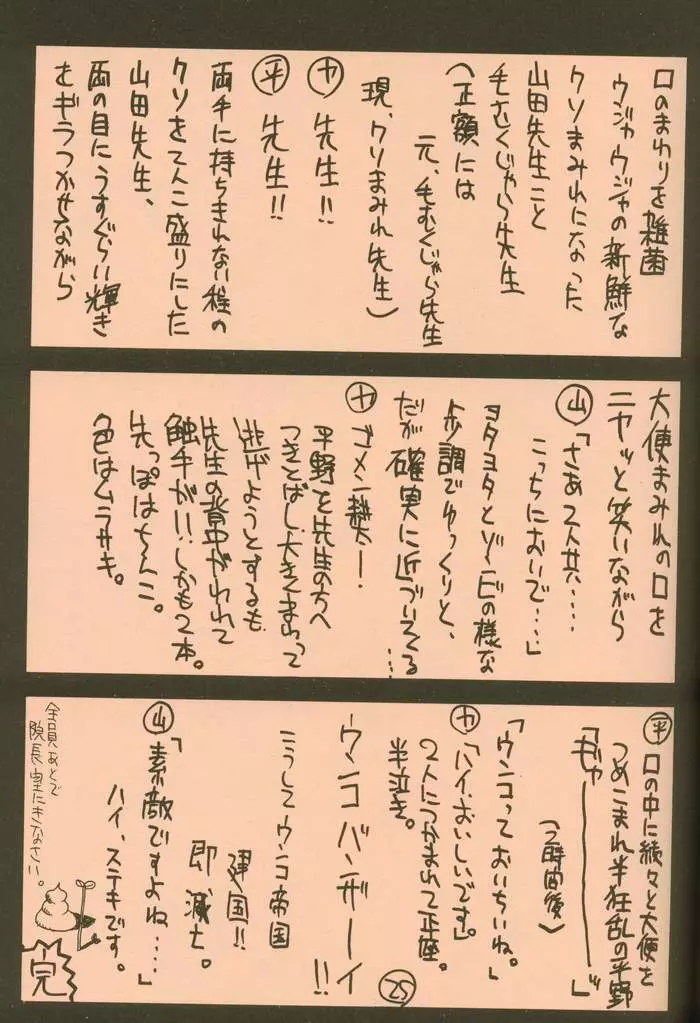 口のまわりを雑菌
ウジャウジャの新鮮な
クソまみれになった
山田先生こと
毛むくじゃら先生
(正確には
元、毛むくじゃら先生
現、クソまみれ先生)
カ 先生!!
平 先生!!
両手に持ちきれない程の
クソをてんこ盛りにした
山田先生、
両の目にうすぐらい輝き
をギラつかせながら
大便まみれの口を
ニヤッと笑いながら
山「さあ2人共‥‥
こっちにおいで‥‥」
ヨタヨタとゾンビの様な
歩調でゆっくりと、
だが確実に近づいてくる…
カ ゴメン
平野を先生の方へ
つきとばし大きくまわって
逃げようとするも
先生の背中がわれて
触手が!!しかも2本。
先っぽはちんこ。
色はムラサキ。
平 口の中に続々と大便を
つめこまれ半狂乱の平野
「ギャーーーー」
(2時間後)
「ウンコっておいちいね。」
カ「ハイ、おいしいです」。
2人につかまれて正座。
半泣き。
ウンコバンザーイ!!
こうしてウンコ帝国
建国!!
即滅亡。
山「素敵ですよね‥‥」
ハイ、ステキです。
全員あとで
院長室にきなさい。
完
25